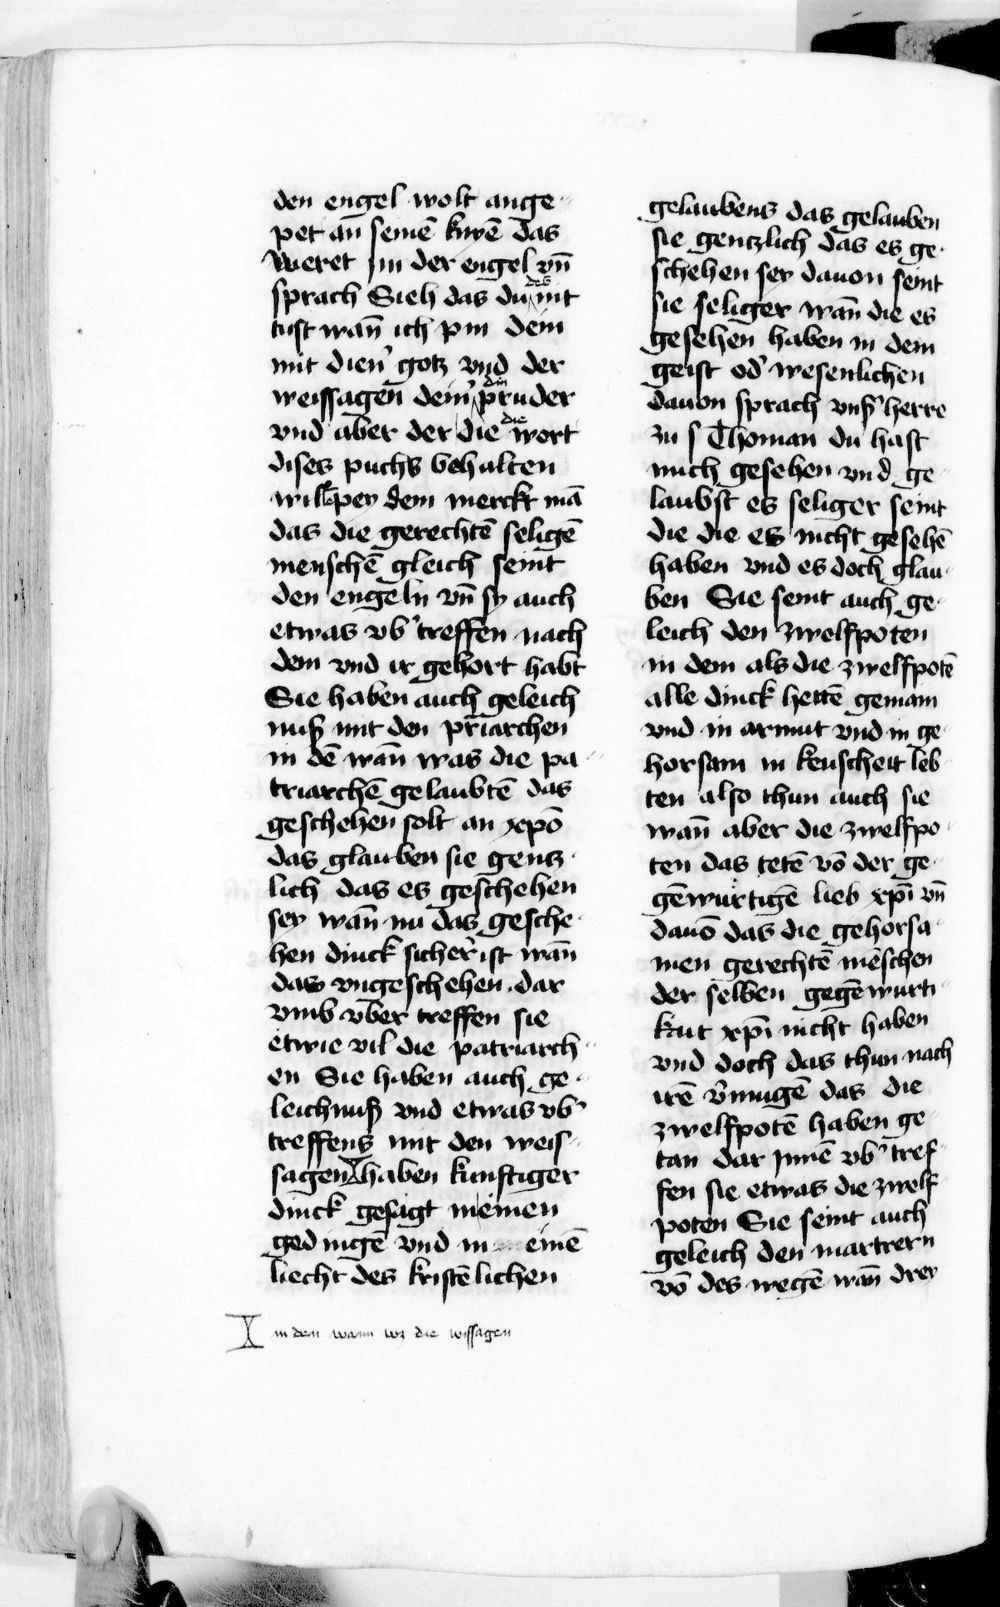 den engel wolt ange-
pet an̄ seinē knyē das
Weret jm der engel vn̄
sprach Sieh das du des nit
tust wan̄ ich pin dein
mit dien' gotz vnd der
weissagen dein' din pruder
vnd aber der die die wort
dises puchs behalten
will pey dem merckt mā
das die gerechtē seligē
menschē gleich seint
den engeln vn̄ sy auch
etwas vb' treffen nach
dem vnd ir gehort habt
Sie haben auch geleich
nuß mit den pr̄iarchen
in dē wan̄ was die pa-
triarchē gelaubtē das
geschehen solt an xpō
das glauben sie gentz-
lich das es geschehen
sey wan̄ nu das gesche-
hen dinck sicher' ist wan̄
das vngeschehen dar
vmb vber treffen sie
etwie vil die patriarch-
en Sie haben auch ge-
leichnuß vnd etwas vb'
treffens mit den weis-
sagen haben kunftiger
dinck gesagt in einen
gedingē vnd in einē
liecht des kristēlichen
in dem wann wz die wissagen
gelaubens das gelauben
sie gentzlich das es ge-
schehen sey dauon seint
sie seliger wan̄ die es
gesehen haben in dem
geist od' wesenlichen
dauon sprach vnß' herre
zu s Thoman du hast
mich gesehen vnd ge-
laubst es seliger seint
die die es nicht gesehē
haben vnd es doch glau-
ben Sie seint auch ge-
leich den zwelfpoten
in dem als die zwelfpotē
alle dinck hettē gemain
vnd in armut vnd in ge-
horsam in keuscheit leb-
ten also thun auch sie
wan̄ aber die zwelfpo-
ten das tetē vō der ge-
gēwurtigē lieb xpī vn̄
dauō das die gehorsa-
men gerechtē mēschen
der selben gegēwurti-
kait xpī nicht haben
vnd doch das thun nach
irē v'mugē das die
zwelfpotē haben ge-
tan dar jnnē vb' tref-
fen sie etwas die zwelf-
poten Sie seint auch
geleich den martrern
vō des wegē wan̄ drey